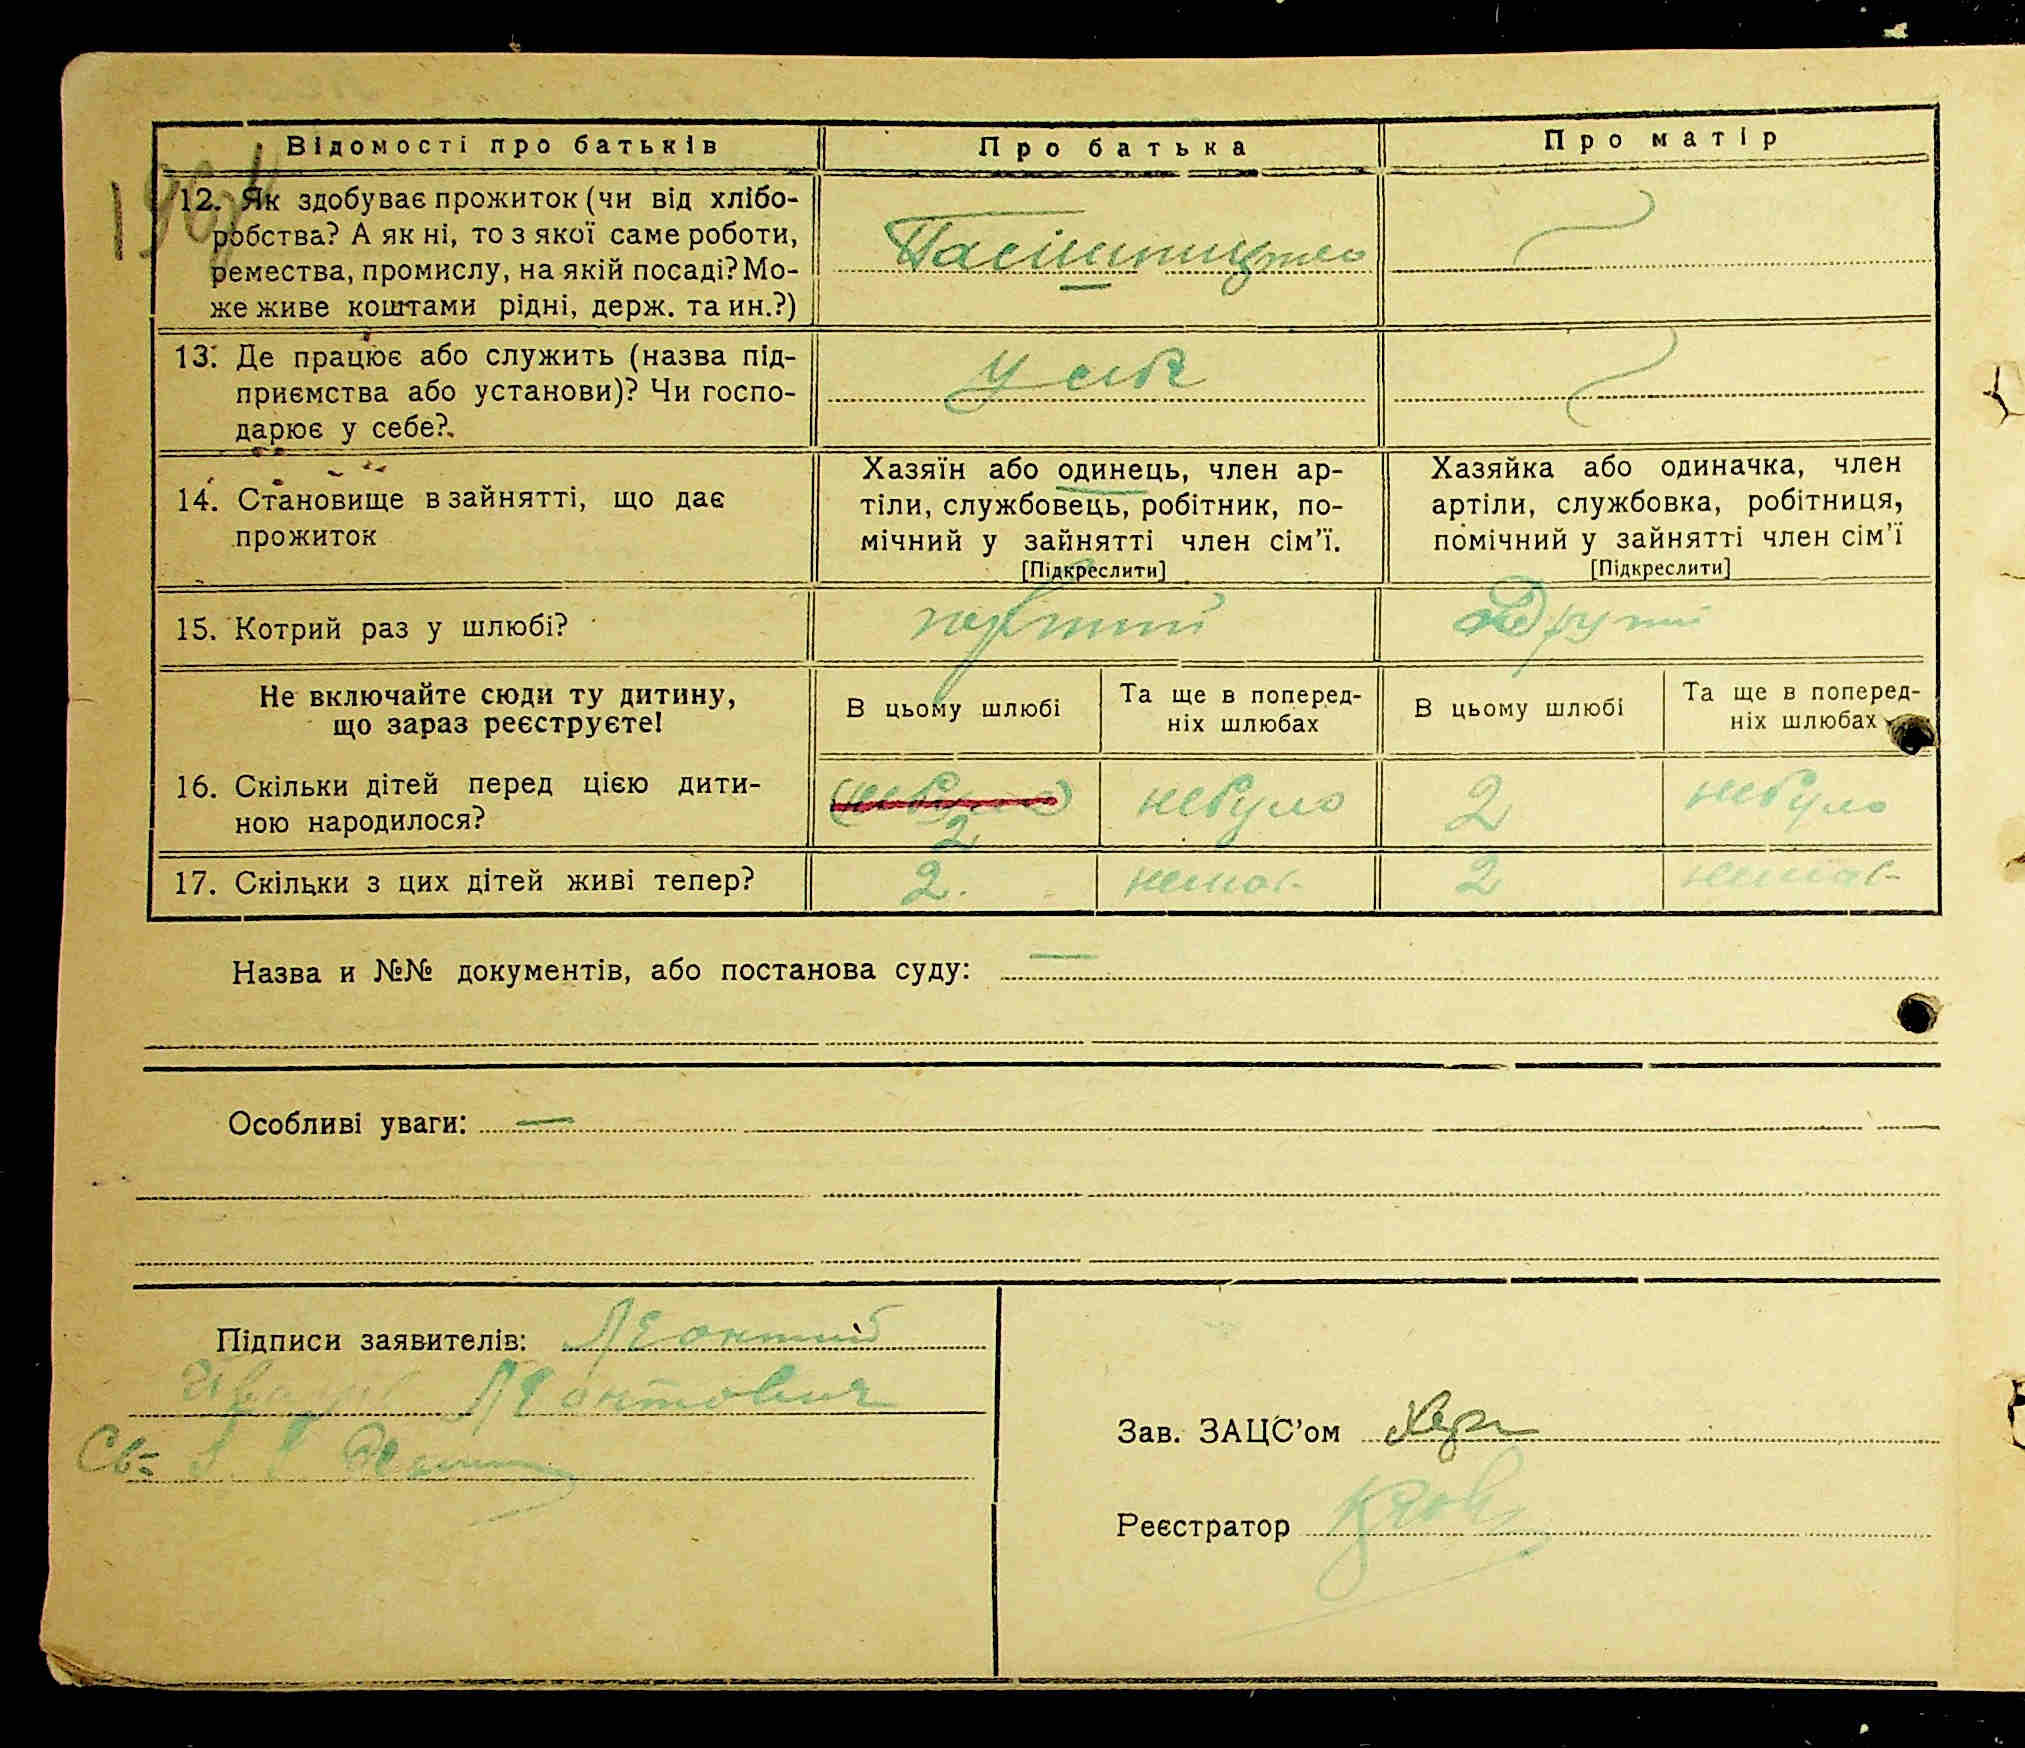 Відомості про батьків Про батька Про матір
12. Як здобуває прожиток (чи від хлібо-
робства? А як ні, то з якої саме роботи,
ремества, промислу, на якій посаді? Мо-
же живе коштами рідні, держ. та ин.?)
13. Де працює або служить (назва під-
приємства або установи)? Чи госпо-
дарює у себе?
у себе
14. Становище в зайнятті, що дає
прожиток
Хазяїн або одинець, член ар-
тіли, службовець, робітник, по-
мічний у зайнятті член сім'ї.
[Підкреслити]
Хазяйка або одиначка, член
артіли, службовка, робітниця,
помічний у зайнятті член сім'ї
[Підкреслити]
15. Котрий раз у шлюбі? первший другий
Не включайте сюди ту дитину,
що зараз реєструєте!
В цьому шлюбі
Та ще в поперед-
ніх шлюбах
В цьому шлюбі
Та ще в поперед-
ніх шлюбах
16. Скільки дітей перед цією дити-
ною народилося?
2 небуло 2 небуло
17. Скільки з цих дітей живі тепер? 2. немає 2 немає
Назва и №№ документів, або постанова суду: —
Особливі уваги: —
Підписи заявителів: Леонтий
Леонтович
Св-
Зав. ЗАЦС'ом
Реєстратор